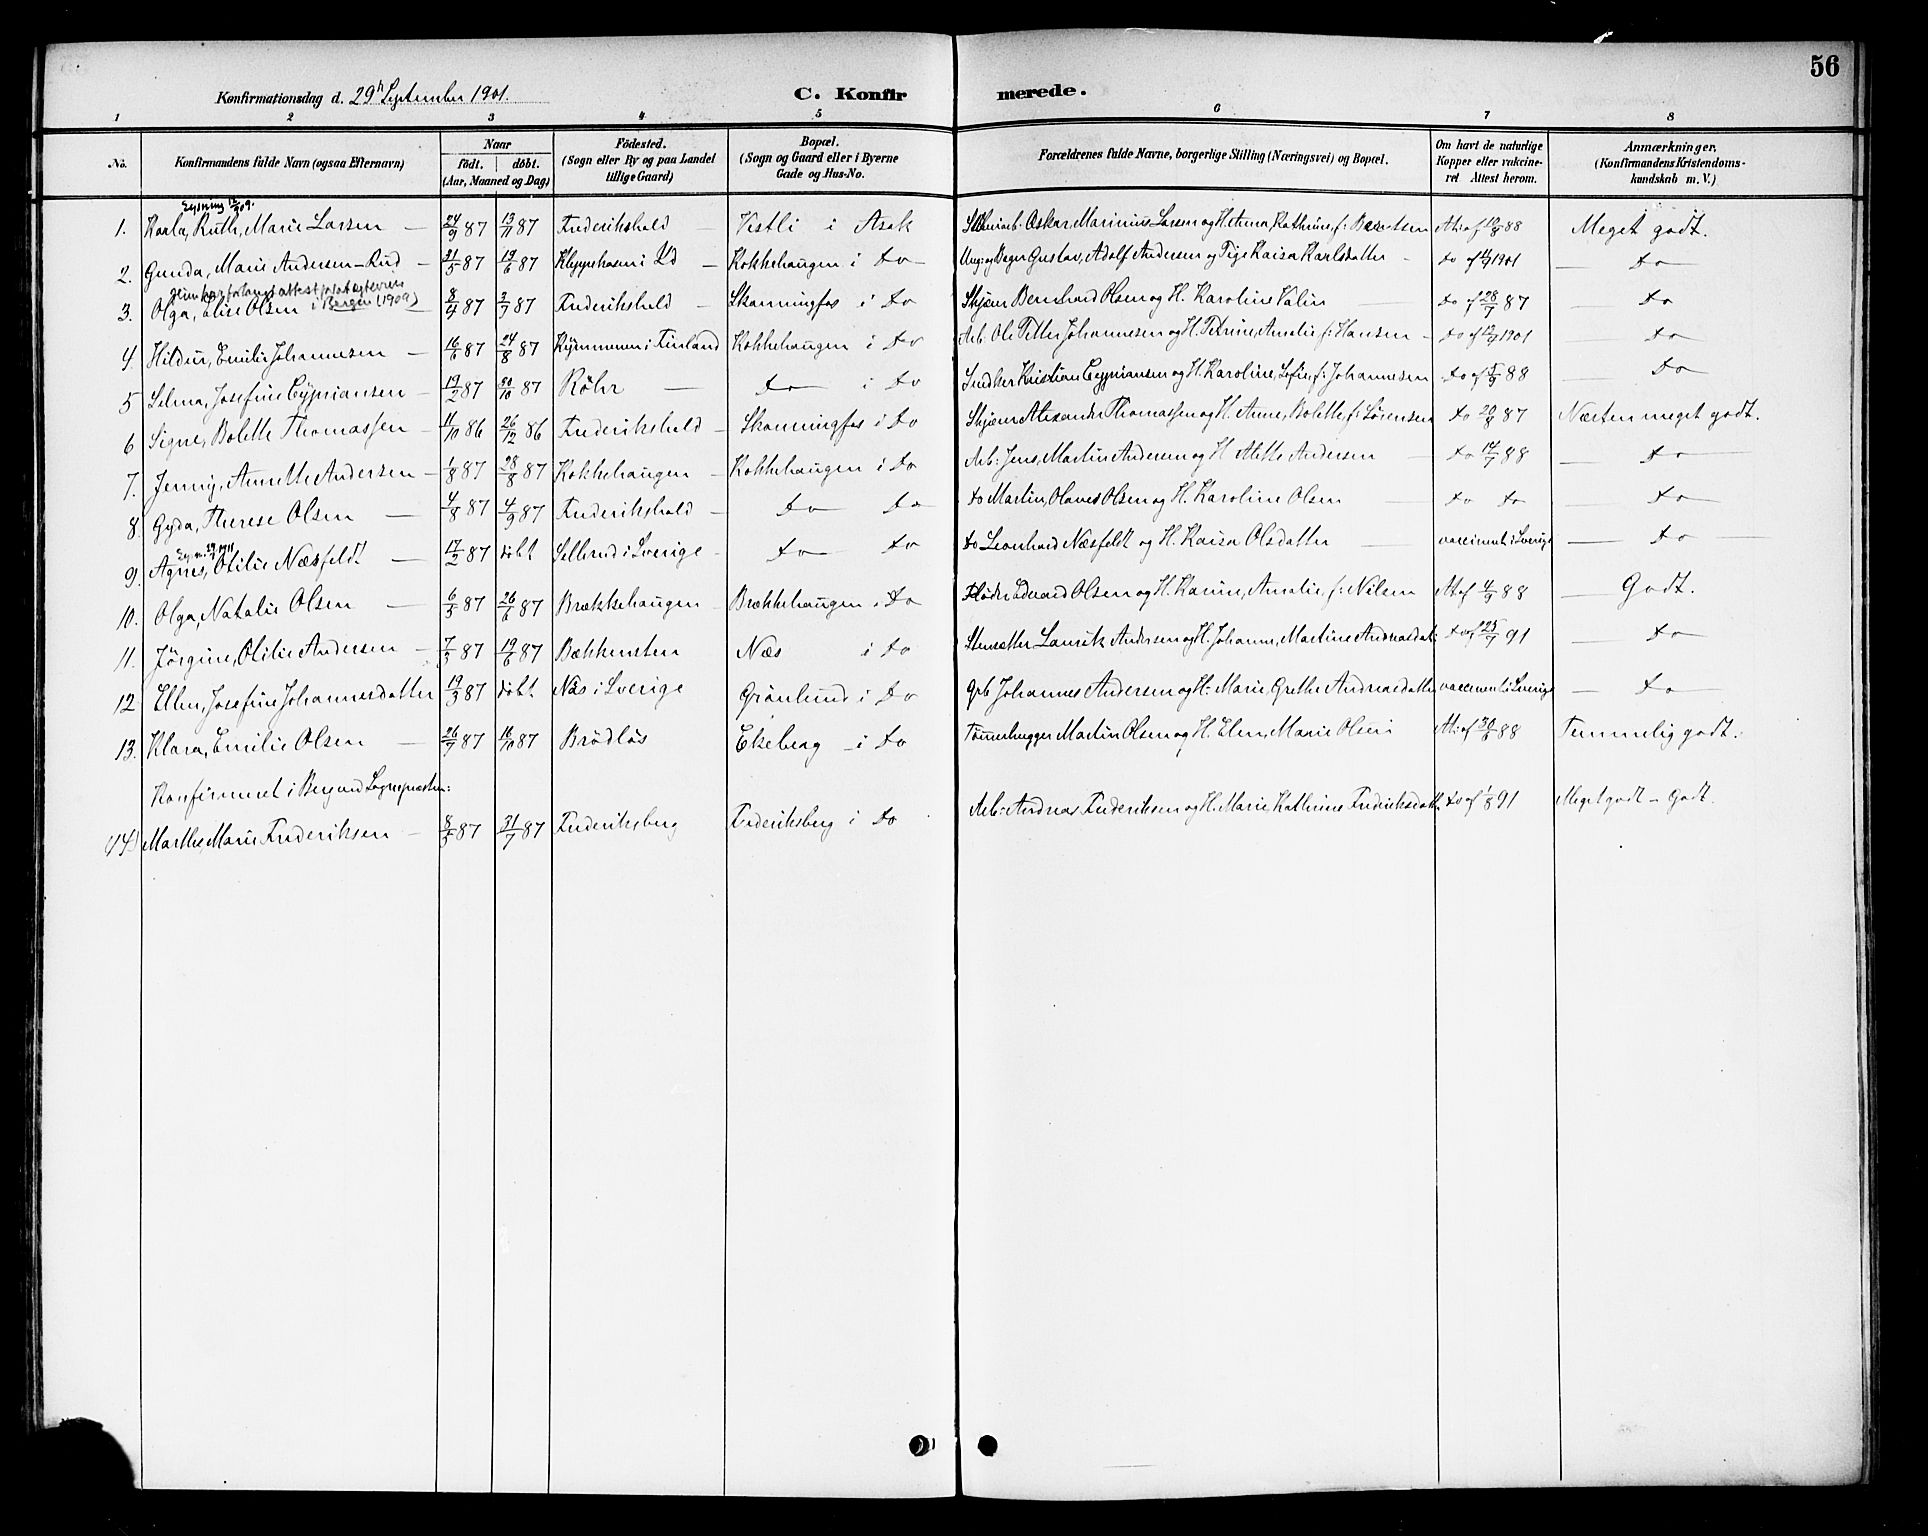 56
Konfirmationsdag d. 29n September 1901.
C. Konfirmerede.
1 2 3 4 5 6 7 8
No. Konfirmandens fulde Navn (ogsaa Efternavn) Naar födt. döbt. (Aar, Maaned og Dag) Födested. (Sogn eller By og paa Landet tillige Gaard) Bopæl. (Sogn og Gaard eller i Byerne Gade og Hus-No. Forældrenes fulde Navne, borgerlige Stilling (Næringsvei) og Bopæl. Om havt de naturlige Kopper eller vakcineret Attest herom. Anmærkninger, (Konfirmandens Kristendomskundskab m. V.)
1. Ruth, Marie Larsen 24/9 87 13/11 87 Frederikshald Vestli i Asak Oskar, Marinius Larsen og H. Anna, Kathrine, f: Berntsen At: af 88 Meget godt.
2. Gunda, Marie Andersen-Rud 21/5 87 19/6 87 i Id Kokkehaugen i Do Gustav, Adolf Andersen og Pige Kaisa Karlsdatter Do af 1901 Do
attest i Bergen (1909)
3. Olga, Elise Olsen 8/4 87 3/7 87 Frederikshald Skonningfos i Do Skjær Bernhard Olsen og H. Karoline Valin Do af 28/7 87 Do
4. Hildur, Emilie Johannesen 16/6 87 24/8 87 Kymmene i Finland Kokkehaugen i Do Arb. Ole Petter Johannesen og H. Petrine, Amalie f: Hansen Do af 1901 Do
5 Selma, Josefine Cypriansen 19/2 87 30/10 87 Röhr Do i Do Snedker Kristian Cypriansen og H. Karoline, Sofie, f: Johannesen Do af 5/9 88 Do
6 Signe, Bolette Thomassen 11/10 86 26/12 86 Frederikshald Skonningfos i Do Skjær Alexander Thomassen og H. Anne, Bolette f: Sörensen Do 20/8 87 Næsten meget godt.
7. Jenny, Annette Andersen 1/8 87 28/8 87 Kokkehaugen Kokkehaugen i Do Arb: Jens, Martin Andersen og H. Alette Andersen Do 14/7 88 Do
8. Gyda, Therese Olsen 4/8 87 4/9 87 Frederikshald Do Do Do Martin, Olaves Olsen og H. Karoline Olsen Do Do Do
9. Agnes, Otilie Næsfeldt 17/2 87 döbt Sillerud i Sverige Do Do Do Leonhard Næsfeldt og H. Kaisa Olsdatter vaccineret i Sverige Do
10. Olga, Natalie Olsen 6/5 87 26/6 87 Brækkehaugen Brækkehaugen i Do Edvard Olsen og H. Karine, Amalie, f: Nilsen At af 4/9 88 Godt.
11. Jörgine, Otilie Andersen 7/3 87 19/6 87 Bækkensten Næs i Do Stensætter Laurits Andersen og H. Johanne, Martine Andreasdat: Do af 25/7 91 Do
12 Ellen, Josefine Johannesdatter 19/3 87 döbt Näs i Sverige Grönlund i Do Grb Johannes Andersen og H: Marie, Grethe Andreasdatter vaccineret i Sverige Do
13. Klara, Emilie Olsen 26/7 87 16/10 87 Brödlös Ekeberg i Do Tömmerhugger Martin Olsen og H. Elen, Marie Olsen At: af 30/6 88 Temmelig godt.
Konfirmeret i Berg ved Sognepræsten:
(14) Marthe, Marie Frederiksen 8/5 87 31/7 87 Frederiksberg Frederiksberg i Do Arb: Andreas Frederiksen og H. Marie Kathrine Fredriksdatter Do af 1/8 91 Meget godt - Godt.